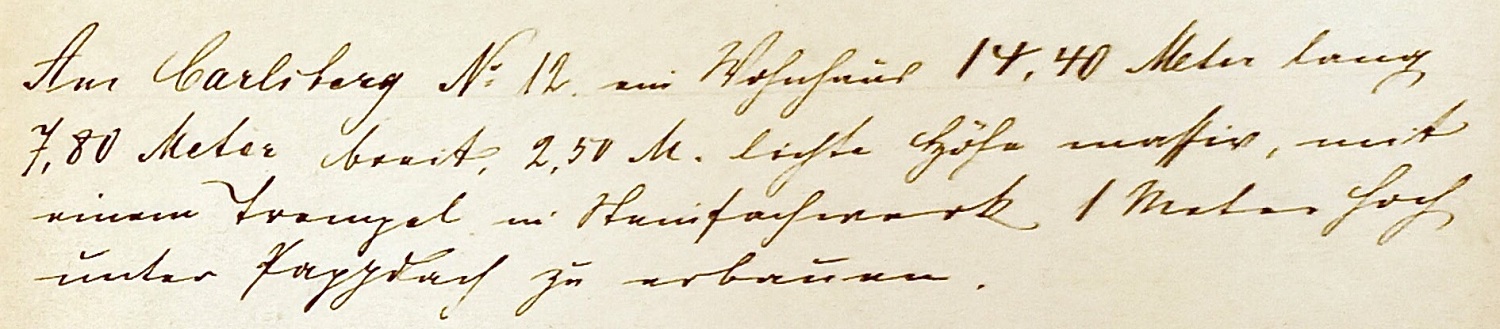 Am Carlsberg No 12. ein Wohnhaus 14,40 Meter lang
7,80 Meter breit, 2,50 M. lichte Höhe massiv, mit
einem Trempel in Steinfachwerk 1 Meter hoch
unter Pappdach zu erbauen.